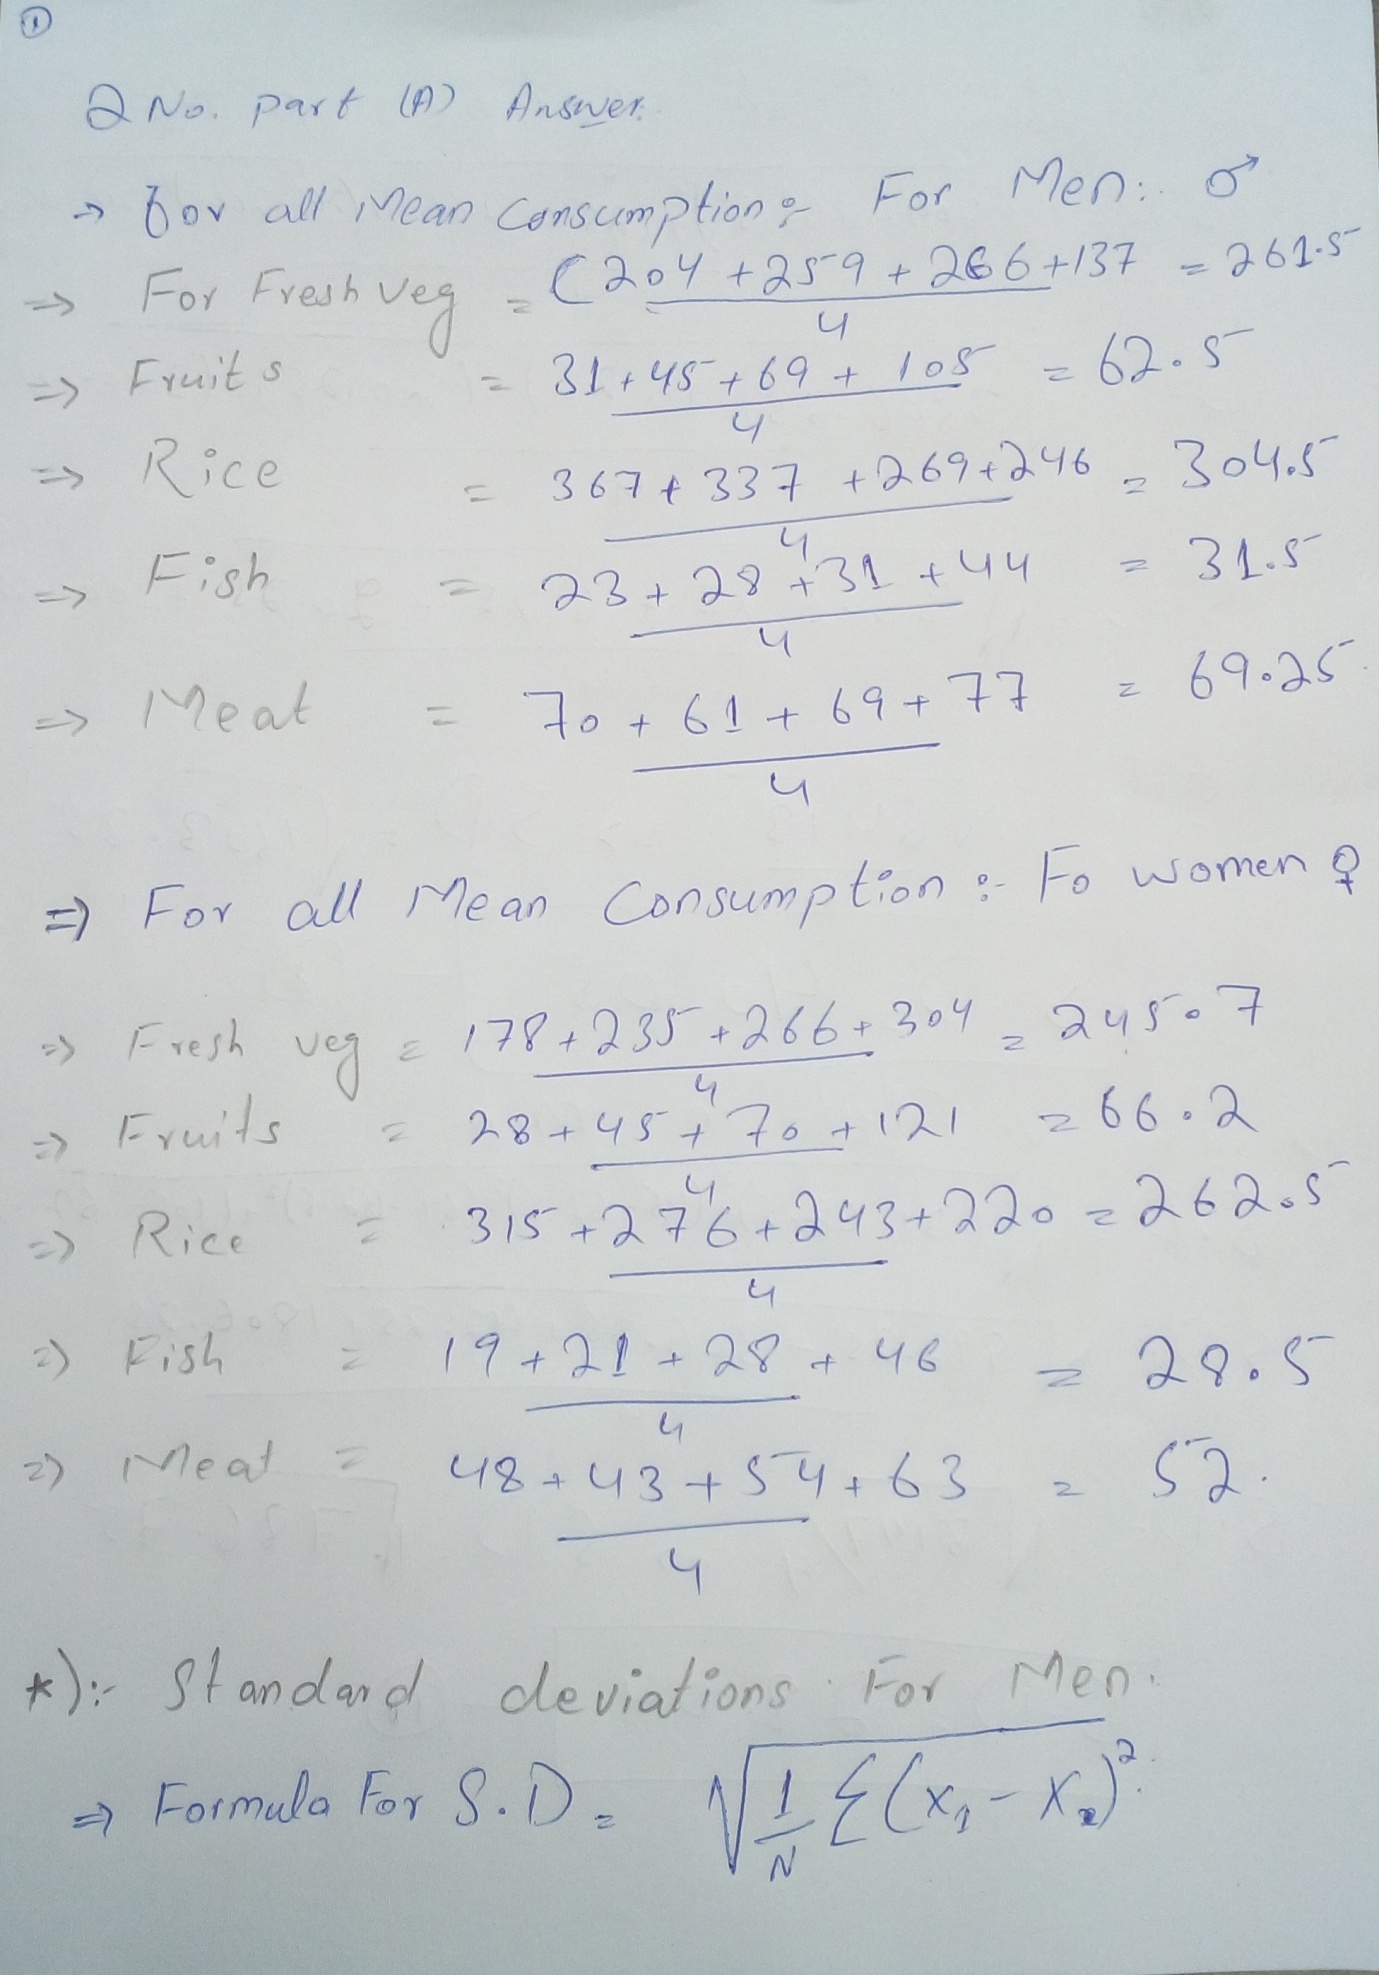 1
2 No. part (A) Answer.
→ for all Mean Consumption :- For Men: ♂
⇒ For Fresh veg = (204 + 259 + 266 + 137 = 261.5
4
⇒ Fruits = 31 + 45 + 69 + 105 = 62.5
4
⇒ Rice = 367 + 337 + 269 + 246 = 304.5
4
⇒ Fish = 23 + 28 + 31 + 44 = 31.5
4
⇒ Meat = 70 + 61 + 69 + 77 = 69.25
4
⇒ For all Mean Consumption :- Fo women ♀
⇒ Fresh veg = 178 + 235 + 266 + 304 = 245.7
4
⇒ Fruits = 28 + 45 + 70 + 121 = 66.2
4
⇒ Rice = 315 + 276 + 243 + 220 = 262.5
4
⇒ Fish = 19 + 21 + 28 + 46 = 28.5
4
⇒ Meat = 48 + 43 + 54 + 63 = 52.
4
*):- Standard deviations For Men.
⇒ Formula For S.D = √1/N Σ(x₁ - x₂)²